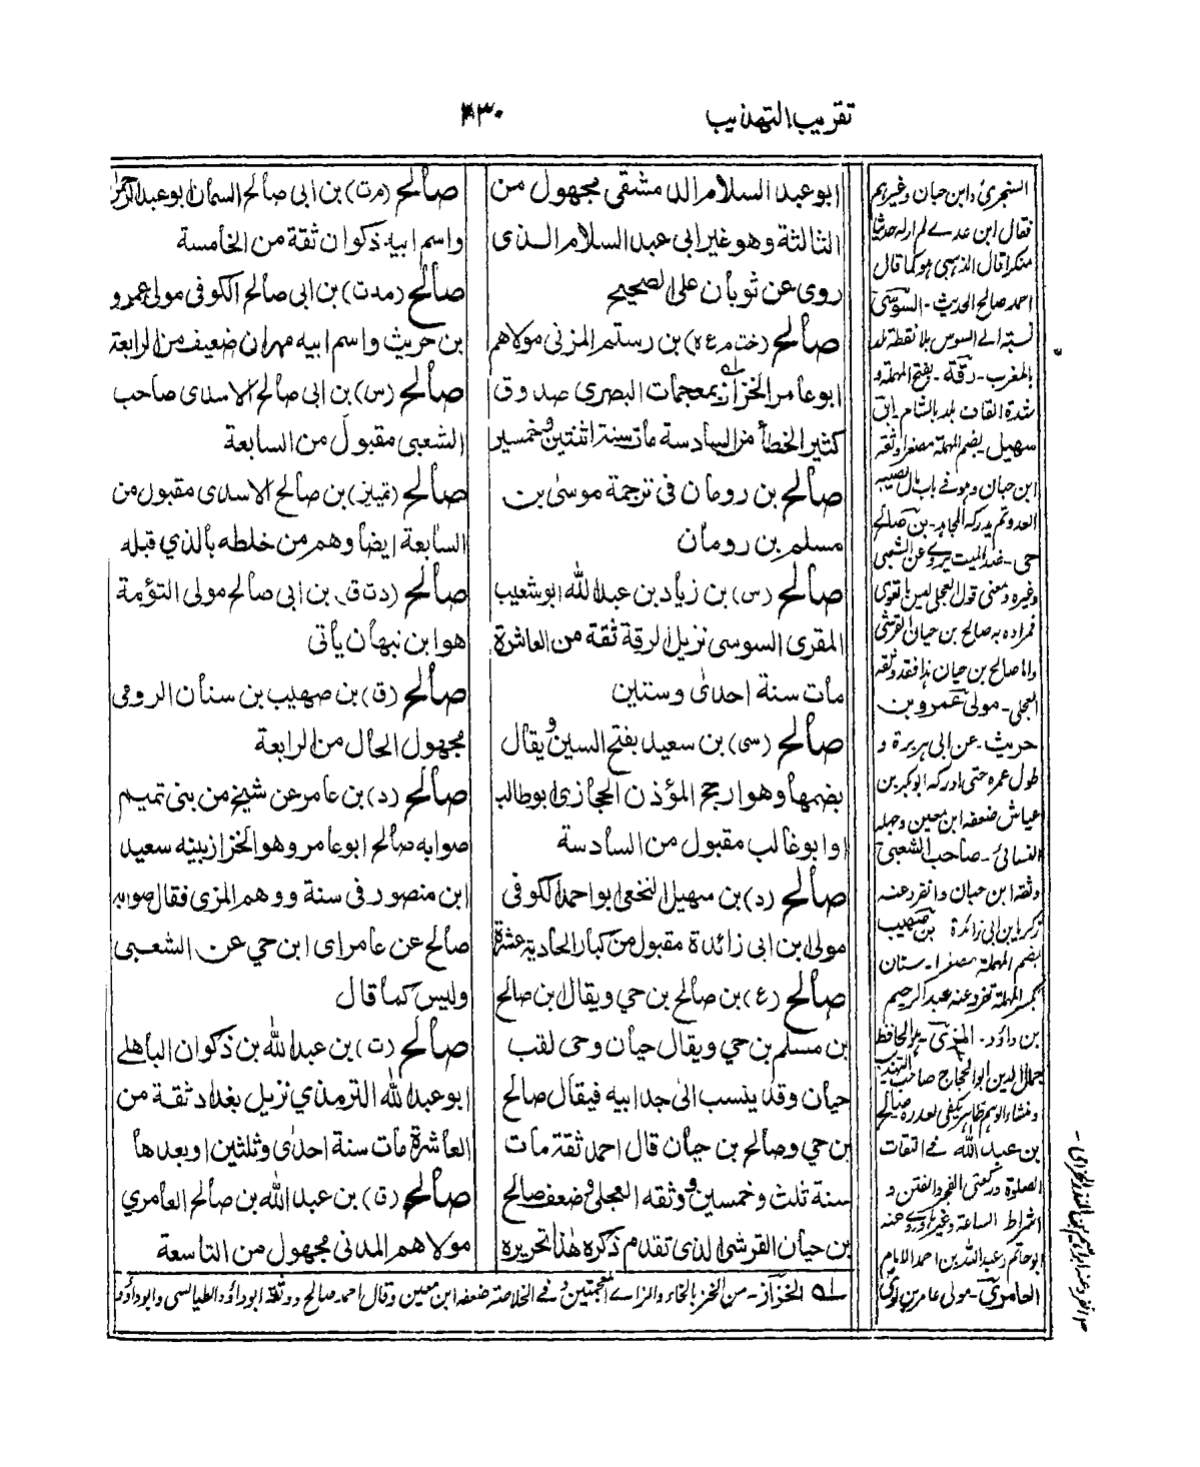 تقريب التهذيب
ابو عبد السلام الدمشقى مجهول من
الثالثة وهو غير ابى عبد السلام الذى
روى عن ثوبان على الصحيح
صالح (خت م ع ه) بن رستم المزنى مولاهم
ابو عامر الخزاز بمعجمات البصرى صدوق
كثير الخطأ من السادسة مات سنة اثنتين وخمسين
صالح بن رومان فى ترجمة موسى بن
مسلم بن رومان
صالح (س) بن زياد بن عبد الله ابو شعيب
المقرى السوسى نزيل الرقة ثقة من العاشرة
مات سنة احدى وستين
صالح (سى) بن سعيد بفتح السين ويقال
بضمها وهو ارجح المؤذن الحجازى ابو طالب
او ابو غالب مقبول من السادسة
صالح (د) بن سهيل النخعى ابو احمد الكوفى
مولى ابن ابى زائدة مقبول من كبار الحادية عشرة
صالح (ع) بن صالح بن حي ويقال ابن صالح
بن مسلم بن حي ويقال حيان وحى لقب
حيان وقد ينسب الى جد ابيه فيقال صالح
بن حي وصالح بن حيان قال احمد ثقة مات
سنة ثلث وخمسين ووثقه العجلى وضعف صالح
بن حيان القرشى الذى تقدم ذكره هذا تحريره
صالح (م ت) بن ابى صالح السمان ابو عبد الرحمن
واسم ابيه ذكوان ثقة من الخامسة
صالح (مدت) بن ابى صالح الكوفى مولى عمرو
بن حريث واسم ابيه مهران ضعيف من الرابعة
صالح (س) بن ابى صالح الاسدى صاحب
الشعبى مقبول من السابعة
صالح (تمييز) بن صالح الاسدى مقبول من
السابعة ايضا وهم من خلطه بالذي قبله
صالح (دت ق) بن ابى صالح مولى التؤمة
هو ابن نبهان يأتى
صالح (ق) بن صهيب بن سنان الرومى
مجهول الحال من الرابعة
صالح (د) بن عامر عن شيخ من بنى تميم
صوابه صالح ابو عامر وهو الخزاز بينه سعيد
ابن منصور فى سنة ووهم المزى فقال صوابه
صالح عن عامر اى ابن حي عن الشعبى
وليس كما قال
صالح (ت) بن عبد الله بن ذكوان الباهلى
ابو عبد الله الترمذي نزيل بغداد ثقة من
العاشرة مات سنة احدى وثلثين او بعدها
صالح (ق) بن عبد الله بن صالح العامري
مولاهم المدنى مجهول من التاسعة
وابن حيان وغيرهم
فقال ابن عدے لم ارله حديثا
منكرا قال الذهبى هو كما قال
احمد صالح الحديث - السوسى
نسبة الے السوس بلا نقطة بلد
بالمغرب - رقة - بفتح المهملة و
شدة القاف بلد بالشام - ابن
سهيل - بضم المهملة مصغرا وثقه
ابن حبان وهو فے باب
بن صالح
حى - يروے عن الشعبى
وغيره ومعنى قول العجلى ليس بالقوى
فمراده به صالح بن حيان القرشى
واما صالح بن حيان هذا فقد وثقه
العجلى - مولى عمرو بن
حريث - عن ابى هريرة و
طول عمره حتى ادركه ابو بكر بن
عياش ضعفه ابن معين وجهله
النسائى - صاحب الشعبى
وثقه ابن حبان وانفرد عنه
زكريا بن ابى زائدة بن صهيب
بضم المهملة مصغرا - سنان
بكسر المهملة تفرد عنه عبد الرحيم
بن داؤد - المزى - هو الحافظ
جمال الدين ابو الحجاج صاحب التهذيب
بن عبد الله فے الثقات
اشراط الساعة وغيرها روے عنه
ابو حاتم وعبد الله بن احمد الامام
العامرى - مولى عامر بن لوى
له الخزاز - من الخز بالخاء والزاے المعجمتين وفے الخلاصة ضعفه ابن معين وقال احمد صالح ووثقه ابو داؤد الطيالسى وابو داؤد